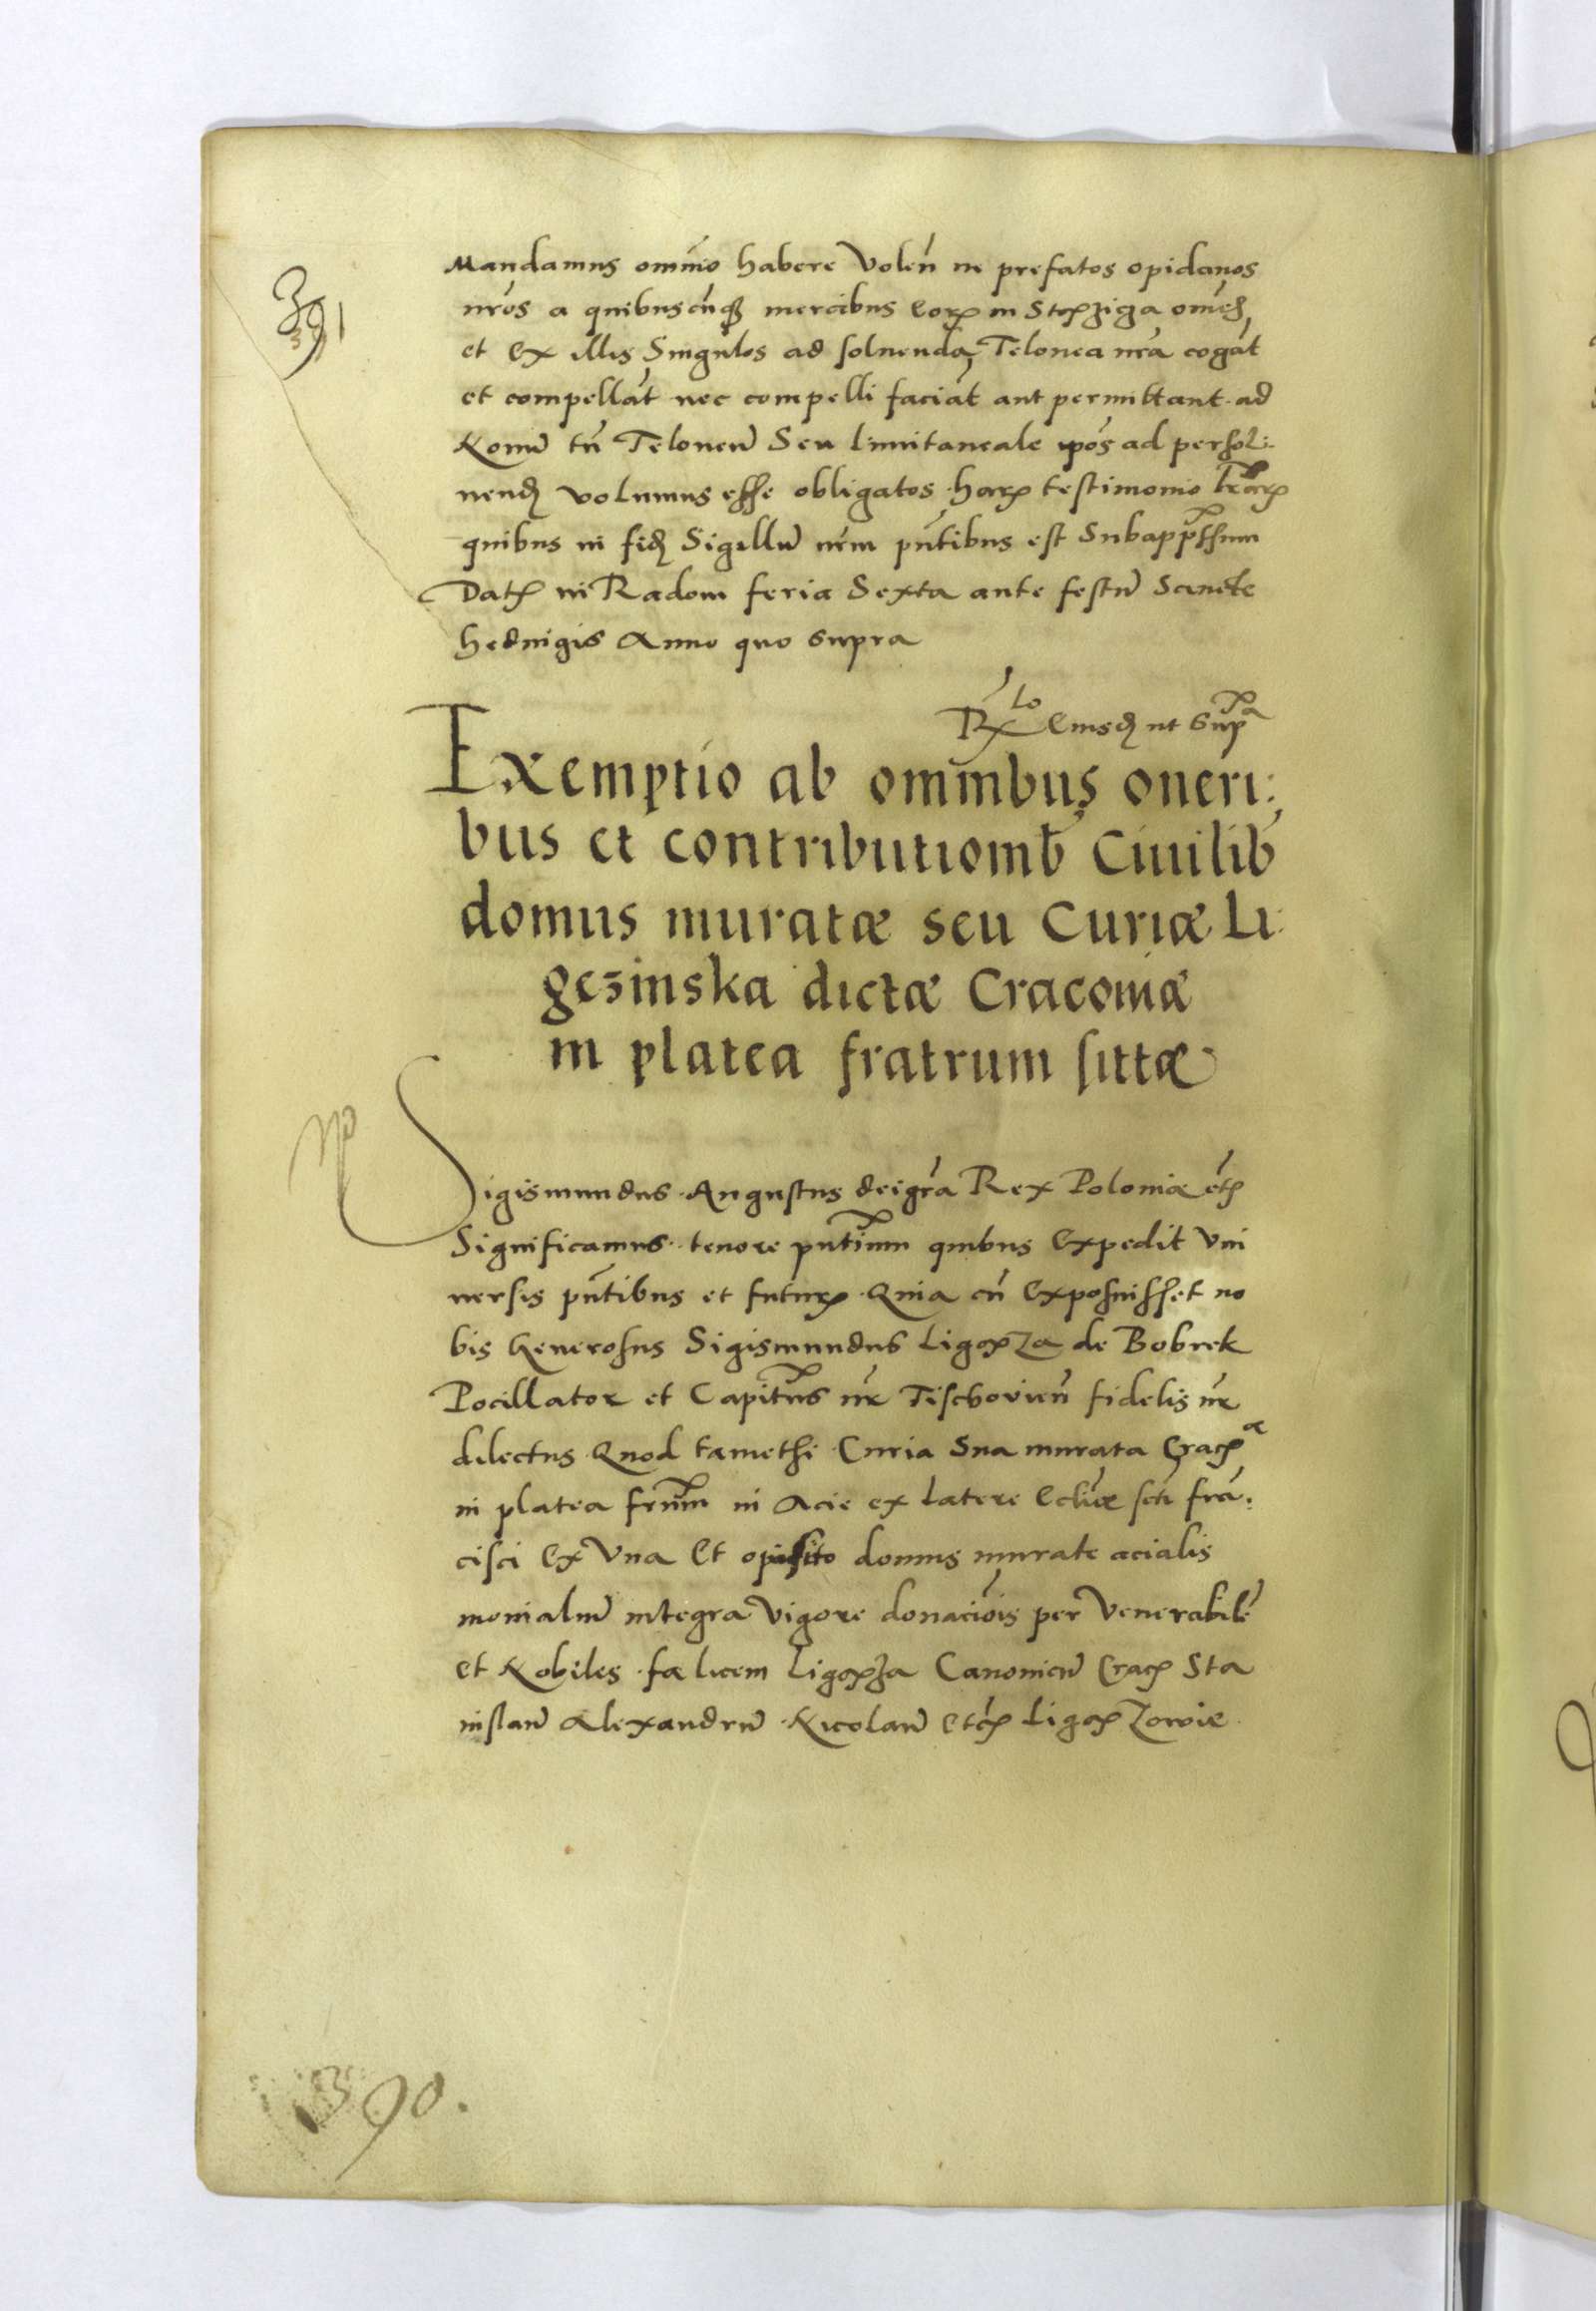 391
Mandamus omnio habere Voleñ ne prefatos opidanos
nros a quibuscuq mercibus eorꝝ in Strzyga omēs
et ex illis Singulos ad soluenda Telonea nra cogāt
et compellāt nec compelli faciāt aut permittant ad
Nouū tñ Teloneū Seu limitaneale ipos ad persol:
uendꝫ volumus esse obligatos harꝝ testimonio lrarꝝ
quibus in fidꝫ Sigillū nrm pñtibus est Subappēsum
Datꝫ in Radom feria Sexta ante festū Sancte
heduigis Anno quo supra
Rlo Eiusdꝫ ut supa
Exemptio ab omnibus oneri:
bus et contributionib Ciuilib
domus muratæ seu Curiæ Li:
gezinska dictæ Cracouiæ
in platea fratrum sittæ
Sigismundus Augustus dei grā Rex Poloniæ etc
Significamus tenore pñtium quibus expedit Vni
uersis pñtibus et futurꝝ Quia cū exposuisset no
bis Generosus Sigismundus Ligęza de Bobrek
Pocillator et Capitñs nr̄ Fidelis nr̄
dilectus Quod tametsi Curia Sua murata Cracꝫ
in platea frūm in Acie ex latere Ecliæ scti frā:
cisci ex Vna et oposito domus murate acialis
monialiū integra Vigore donaciois per Venerabilē
et Nobiles fælicem Ligęza Canonicū Cracꝫ Sta
nislaū Alexandrū Nicolaū etc Ligęzowie
390.